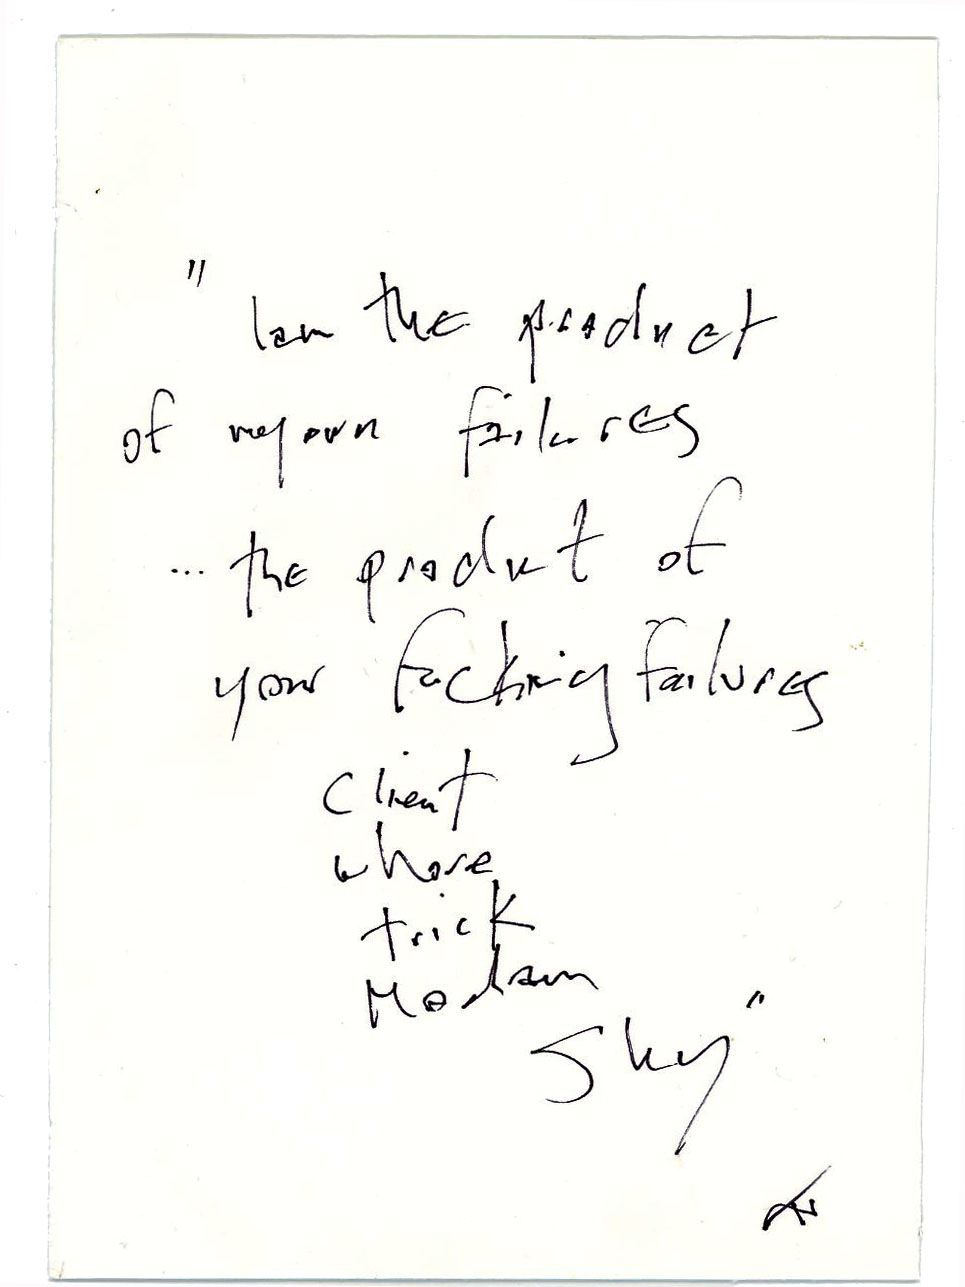 " I am the product
of my own failures
... the product of
your fucking failures
Client
whore
trick
Madam
Sky"